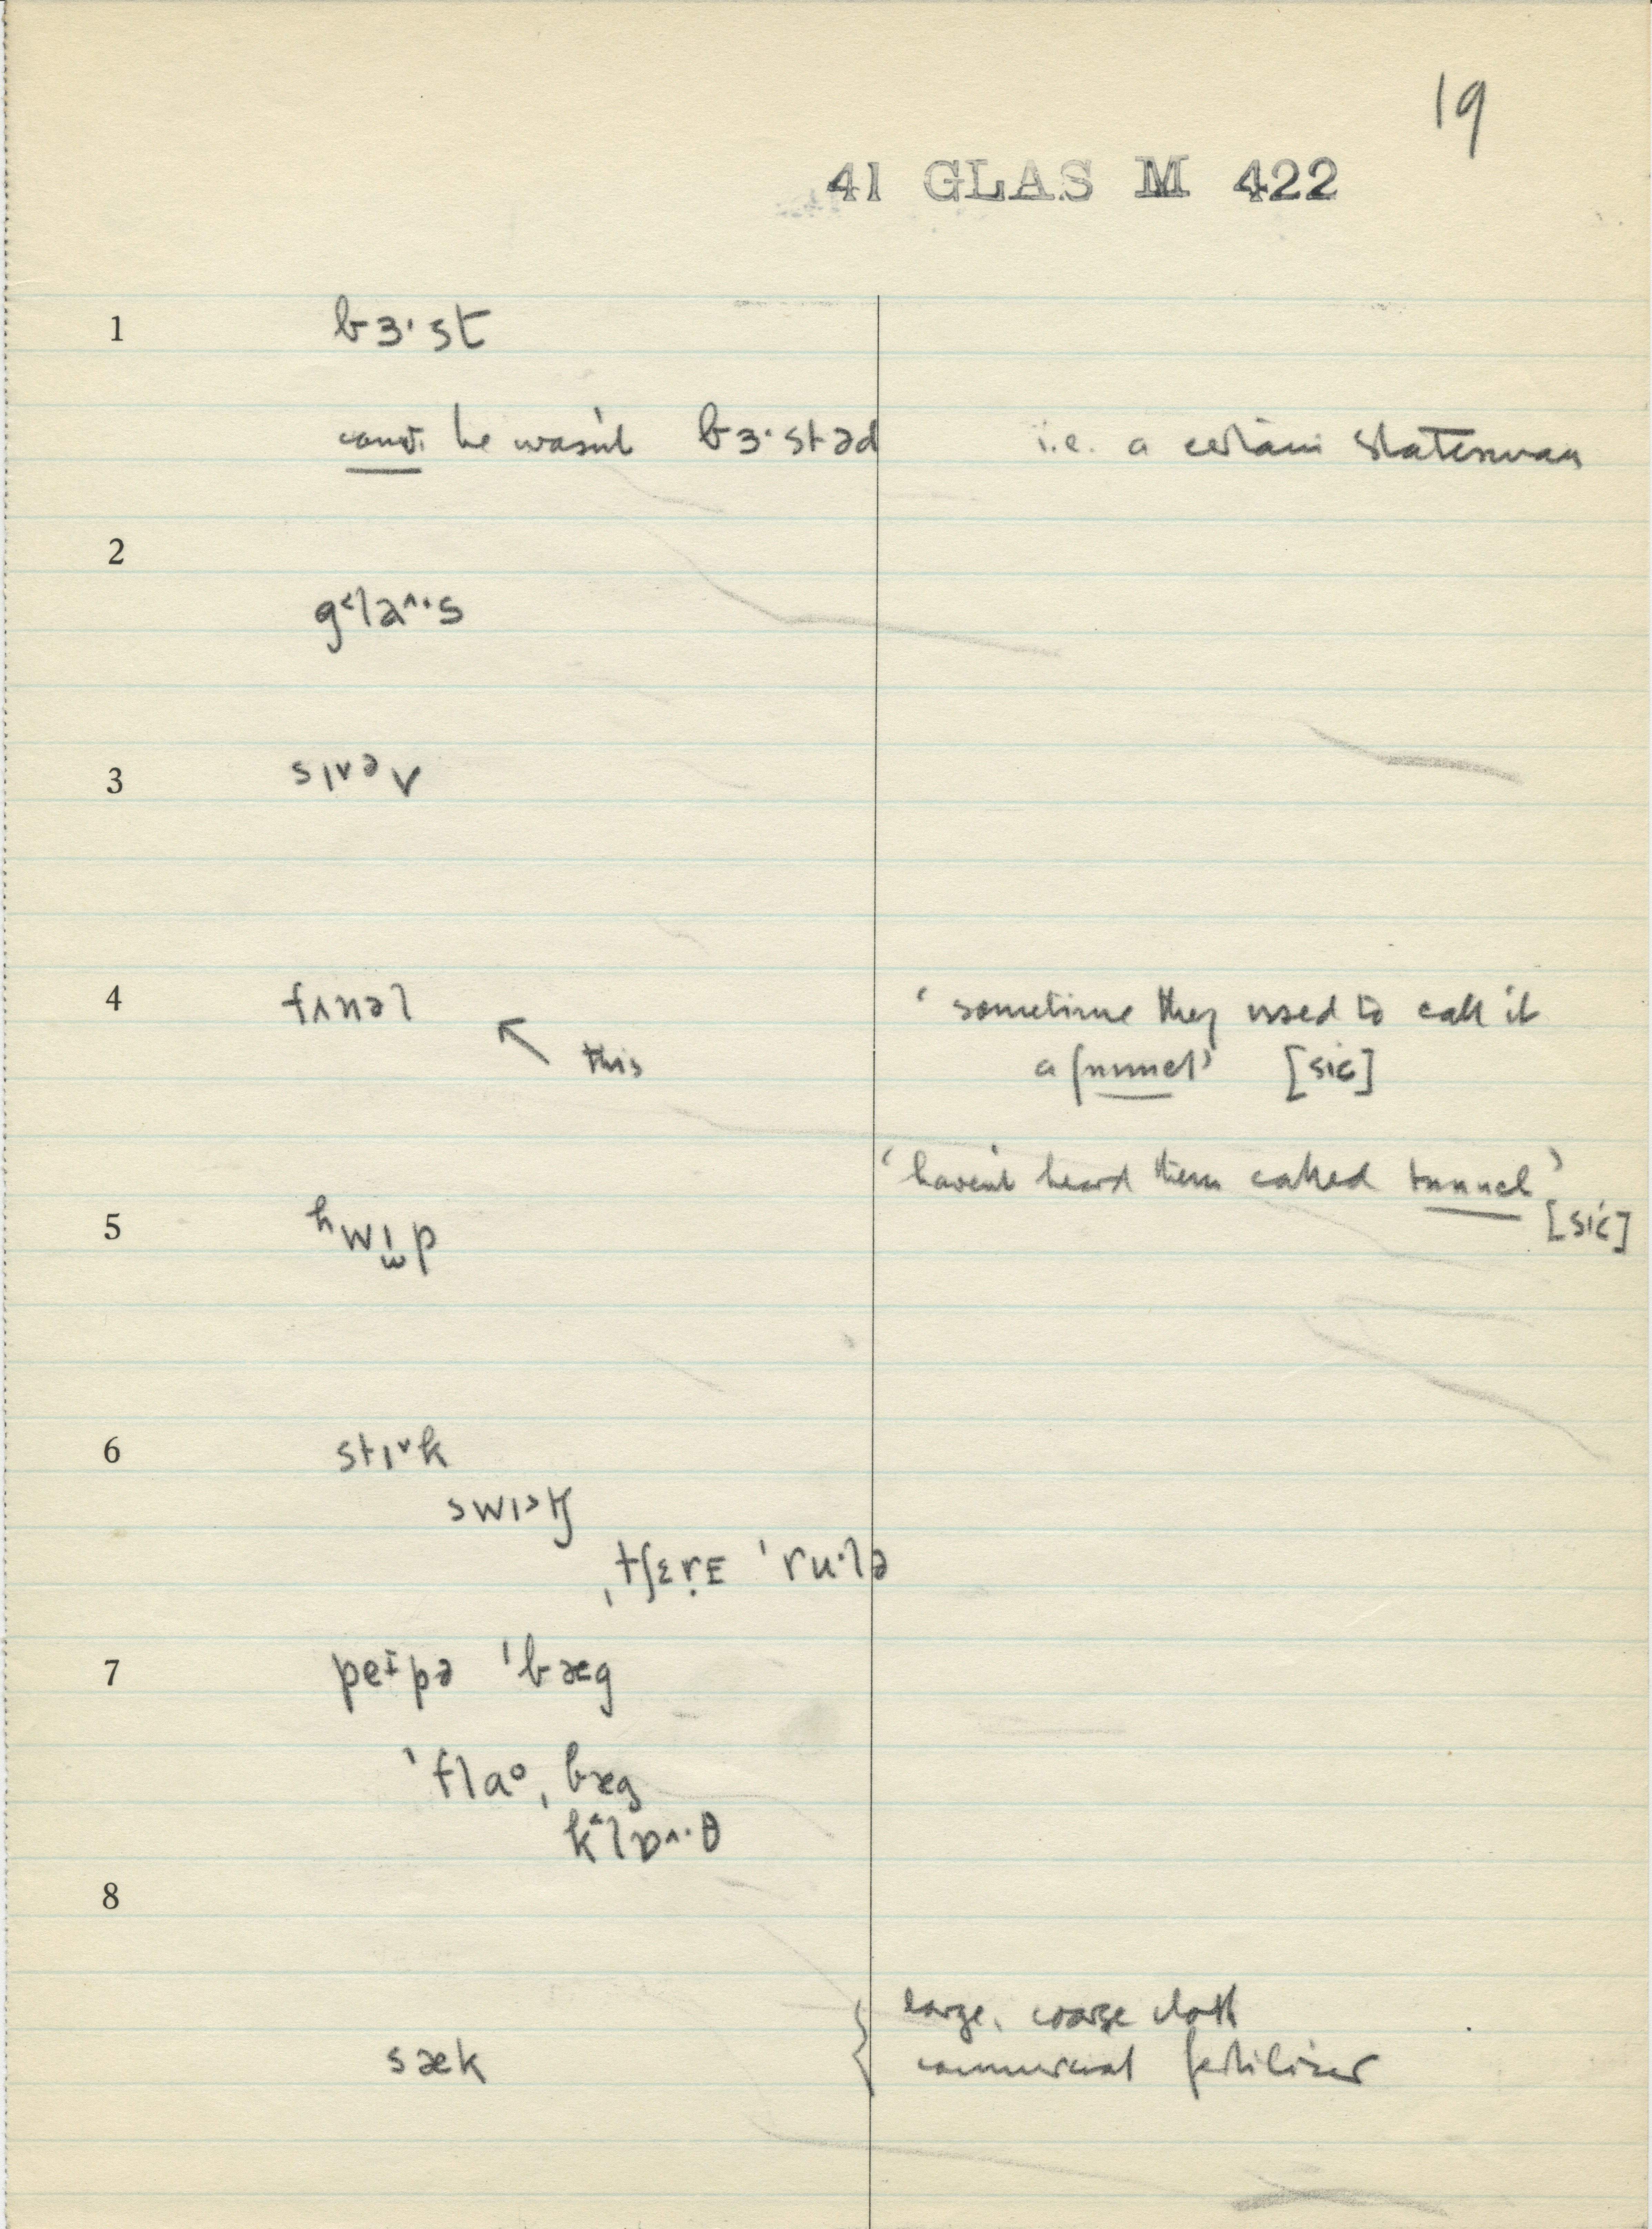 19
41 GLAS M 422
1 bɜ·st
he wasn't bɜ·stəd i.e. a certain statesman
2
g˂la˄·s
3 sɪ˅əv
4 fʌnəl 'sometime they used to call it
this a funnel' [sic]
'haven't heard them called tunnel'
[sic]
5 ʰwɪ̫p
6 stɪ˅k
swɪ˃tʃ
ˌtʃɛṛE ˈru·lə
7 peɪpə ˈbæg
ˈflaᵒˌbæg
k˂lɒ˄·θ
8
large, coarse cloth
sæk { commercial fertilizer